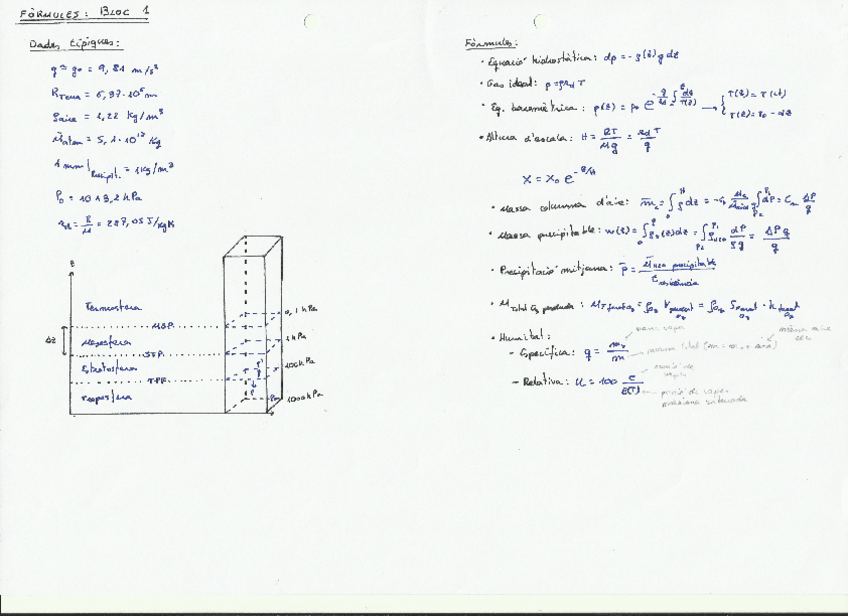 FÒRMULES: BLOC 1
Dades típiques:
g ≈ g₀ = 9,81 m/s²
R_Terra = 6,37·10⁶ m
ρ_aire = 1,22 Kg/m³
M_atm = 5,1·10¹⁸ Kg
1 mm|_Precipit. = 1 Kg/m²
P₀ = 1013,2 hPa
R_d = R/M = 287,05 J/KgK
z
Δz
Termosfera
MSP
Mesosfera
STP
Estratosfera
TPP
Troposfera
0,1 hPa
1 hPa
100 hPa
1000 hPa
Fórmules:
· Equació hidrostàtica: dp = -ρ(z) g dz
· Gas ideal: p = ρ R_d T
· Eq. baromètrica: p(z) = p₀ e^(-g/R_d ∫ dz/T(z)) → { T(z) = T(ct)
T(z) = T₀ - αz
· Altura d'escala: H = RT/Mg = R_d T/g
X = X₀ e^(-z/H)
· Massa columna d'aire:
· Massa precipitable: w(z) =
· Precipitació mitjana: P̄ = M_H₂O precipitable / t_residència
· M_Total O₃ produïda:
· Humitat:
- Específica: q = m_v/m
massa vapor
massa total
massa aire sec
- Relativa: U = 100 e/E(T)
pressió de vapor
pressió de vapor màxima saturada